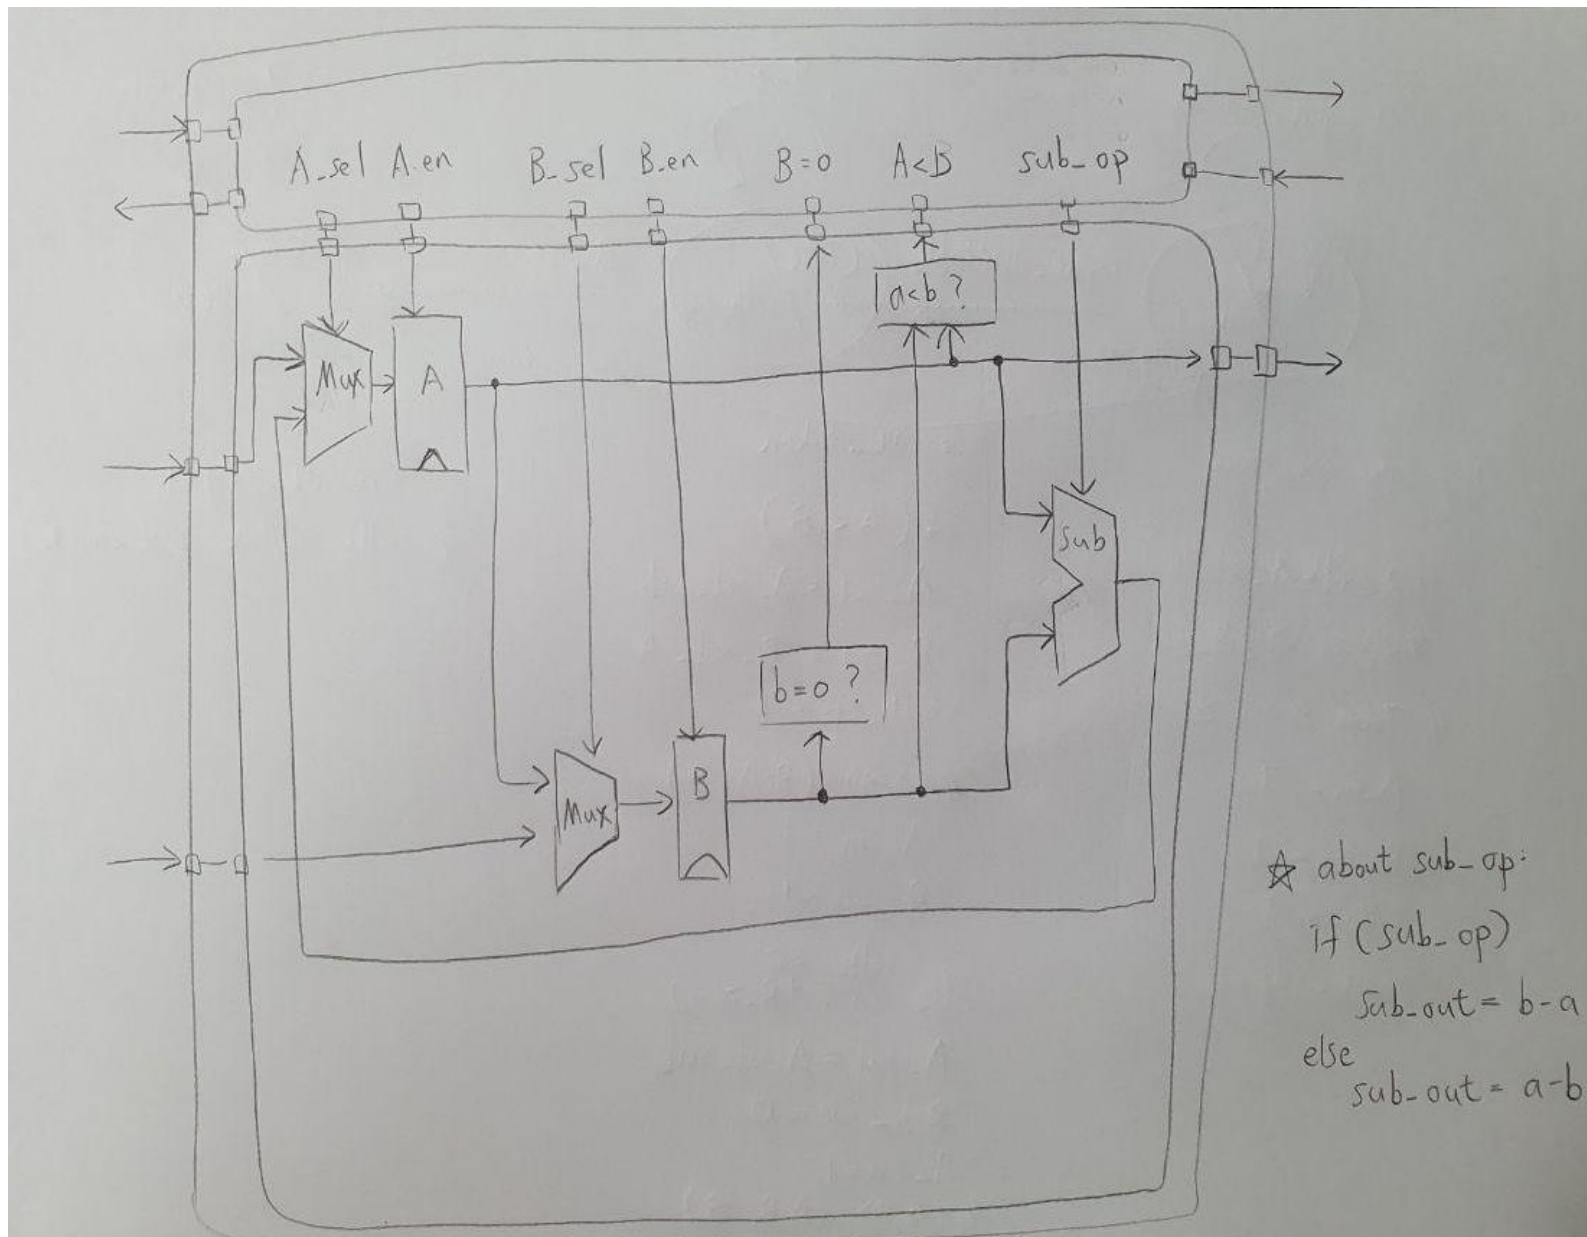 A_sel A_en B_sel B_en B=0 A<B sub_op
a<b ?
Mux A
Sub
b=0 ?
Mux B
☆ about sub_op:
if (sub_op)
sub_out = b-a
else
sub_out = a-b